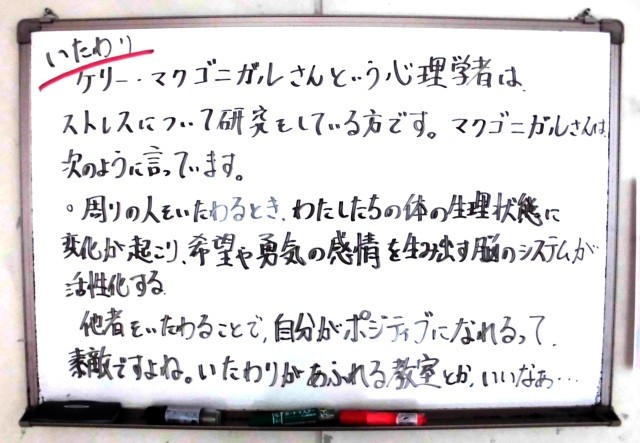 いたわり
ケリー・マクゴニガルさんという心理学者は、
ストレスについて研究をしている方です。マクゴニガルさんは、
次のように言っています。
○周りの人をいたわるとき、わたしたちの体の生理状態に
変化が起こり、希望や勇気の感情を生み出す脳のシステムが
活性化する
他者をいたわることで、自分がポジティブになれるって、
素敵ですよね。いたわりがあふれる教室とか、いいなぁ…